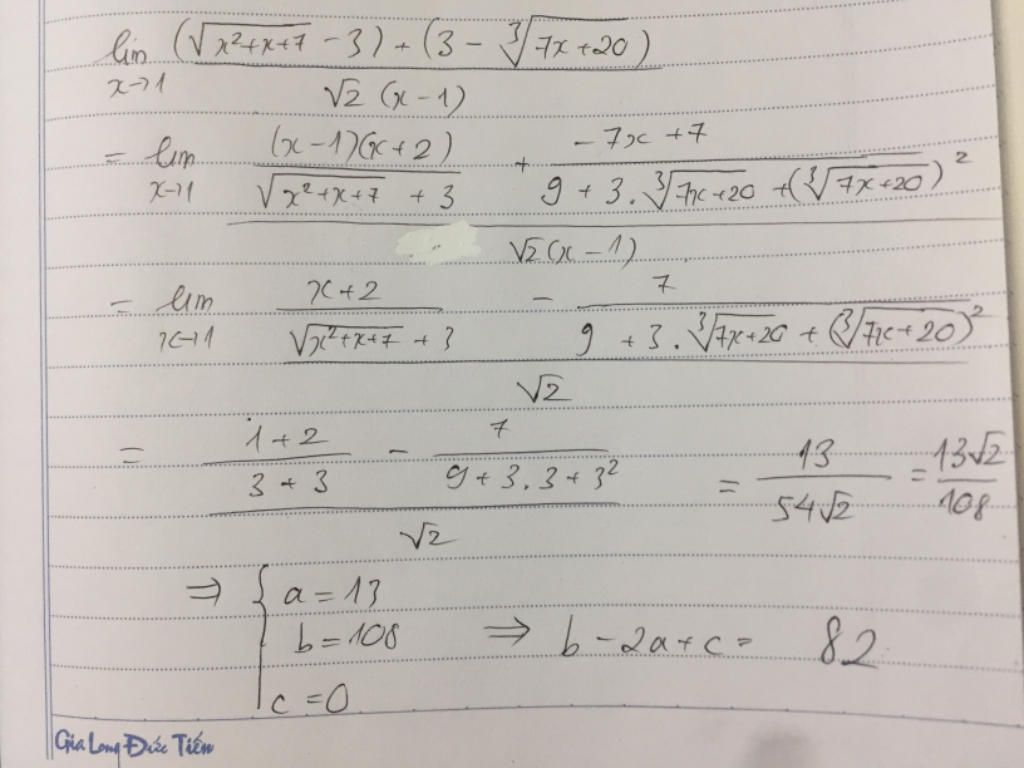 lim x→1 (√(x²+x+7) - 3) + (3 - ∛(7x+20)) / √2 (x-1)
= lim x→1 ((x-1)(x+2) / (√(x²+x+7) + 3) + (-7x+7) / (9 + 3.∛(7x+20) + (∛(7x+20))²)) / √2(x-1)
= lim x→1 ((x+2) / (√(x²+x+7) + 3) - 7 / (9 + 3.∛(7x+20) + (∛(7x+20))²)) / √2
= ((1+2) / (3+3) - 7 / (9+3.3+3²)) / √2 = 13 / 54√2 = 13√2 / 108
⇒ { a = 13
b = 108 ⇒ b - 2a + c = 82
c = 0
Gia Long Đức Tiến